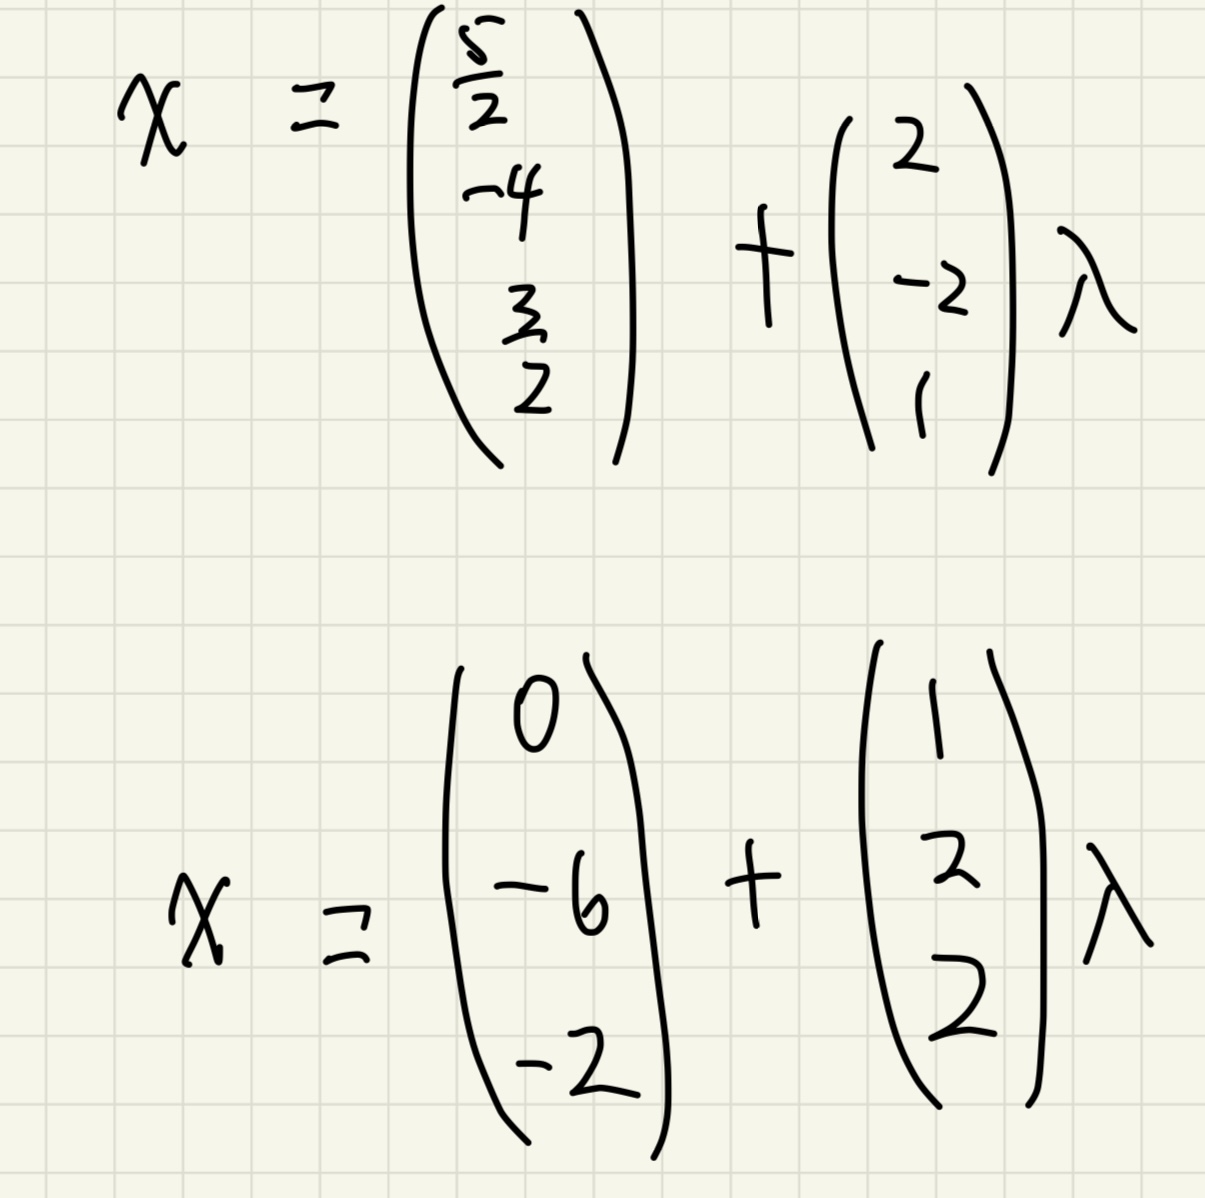 x = (5/2, -4, 3/2) + (2, -2, 1) λ
x = (0, -6, -2) + (1, 2, 2) λ